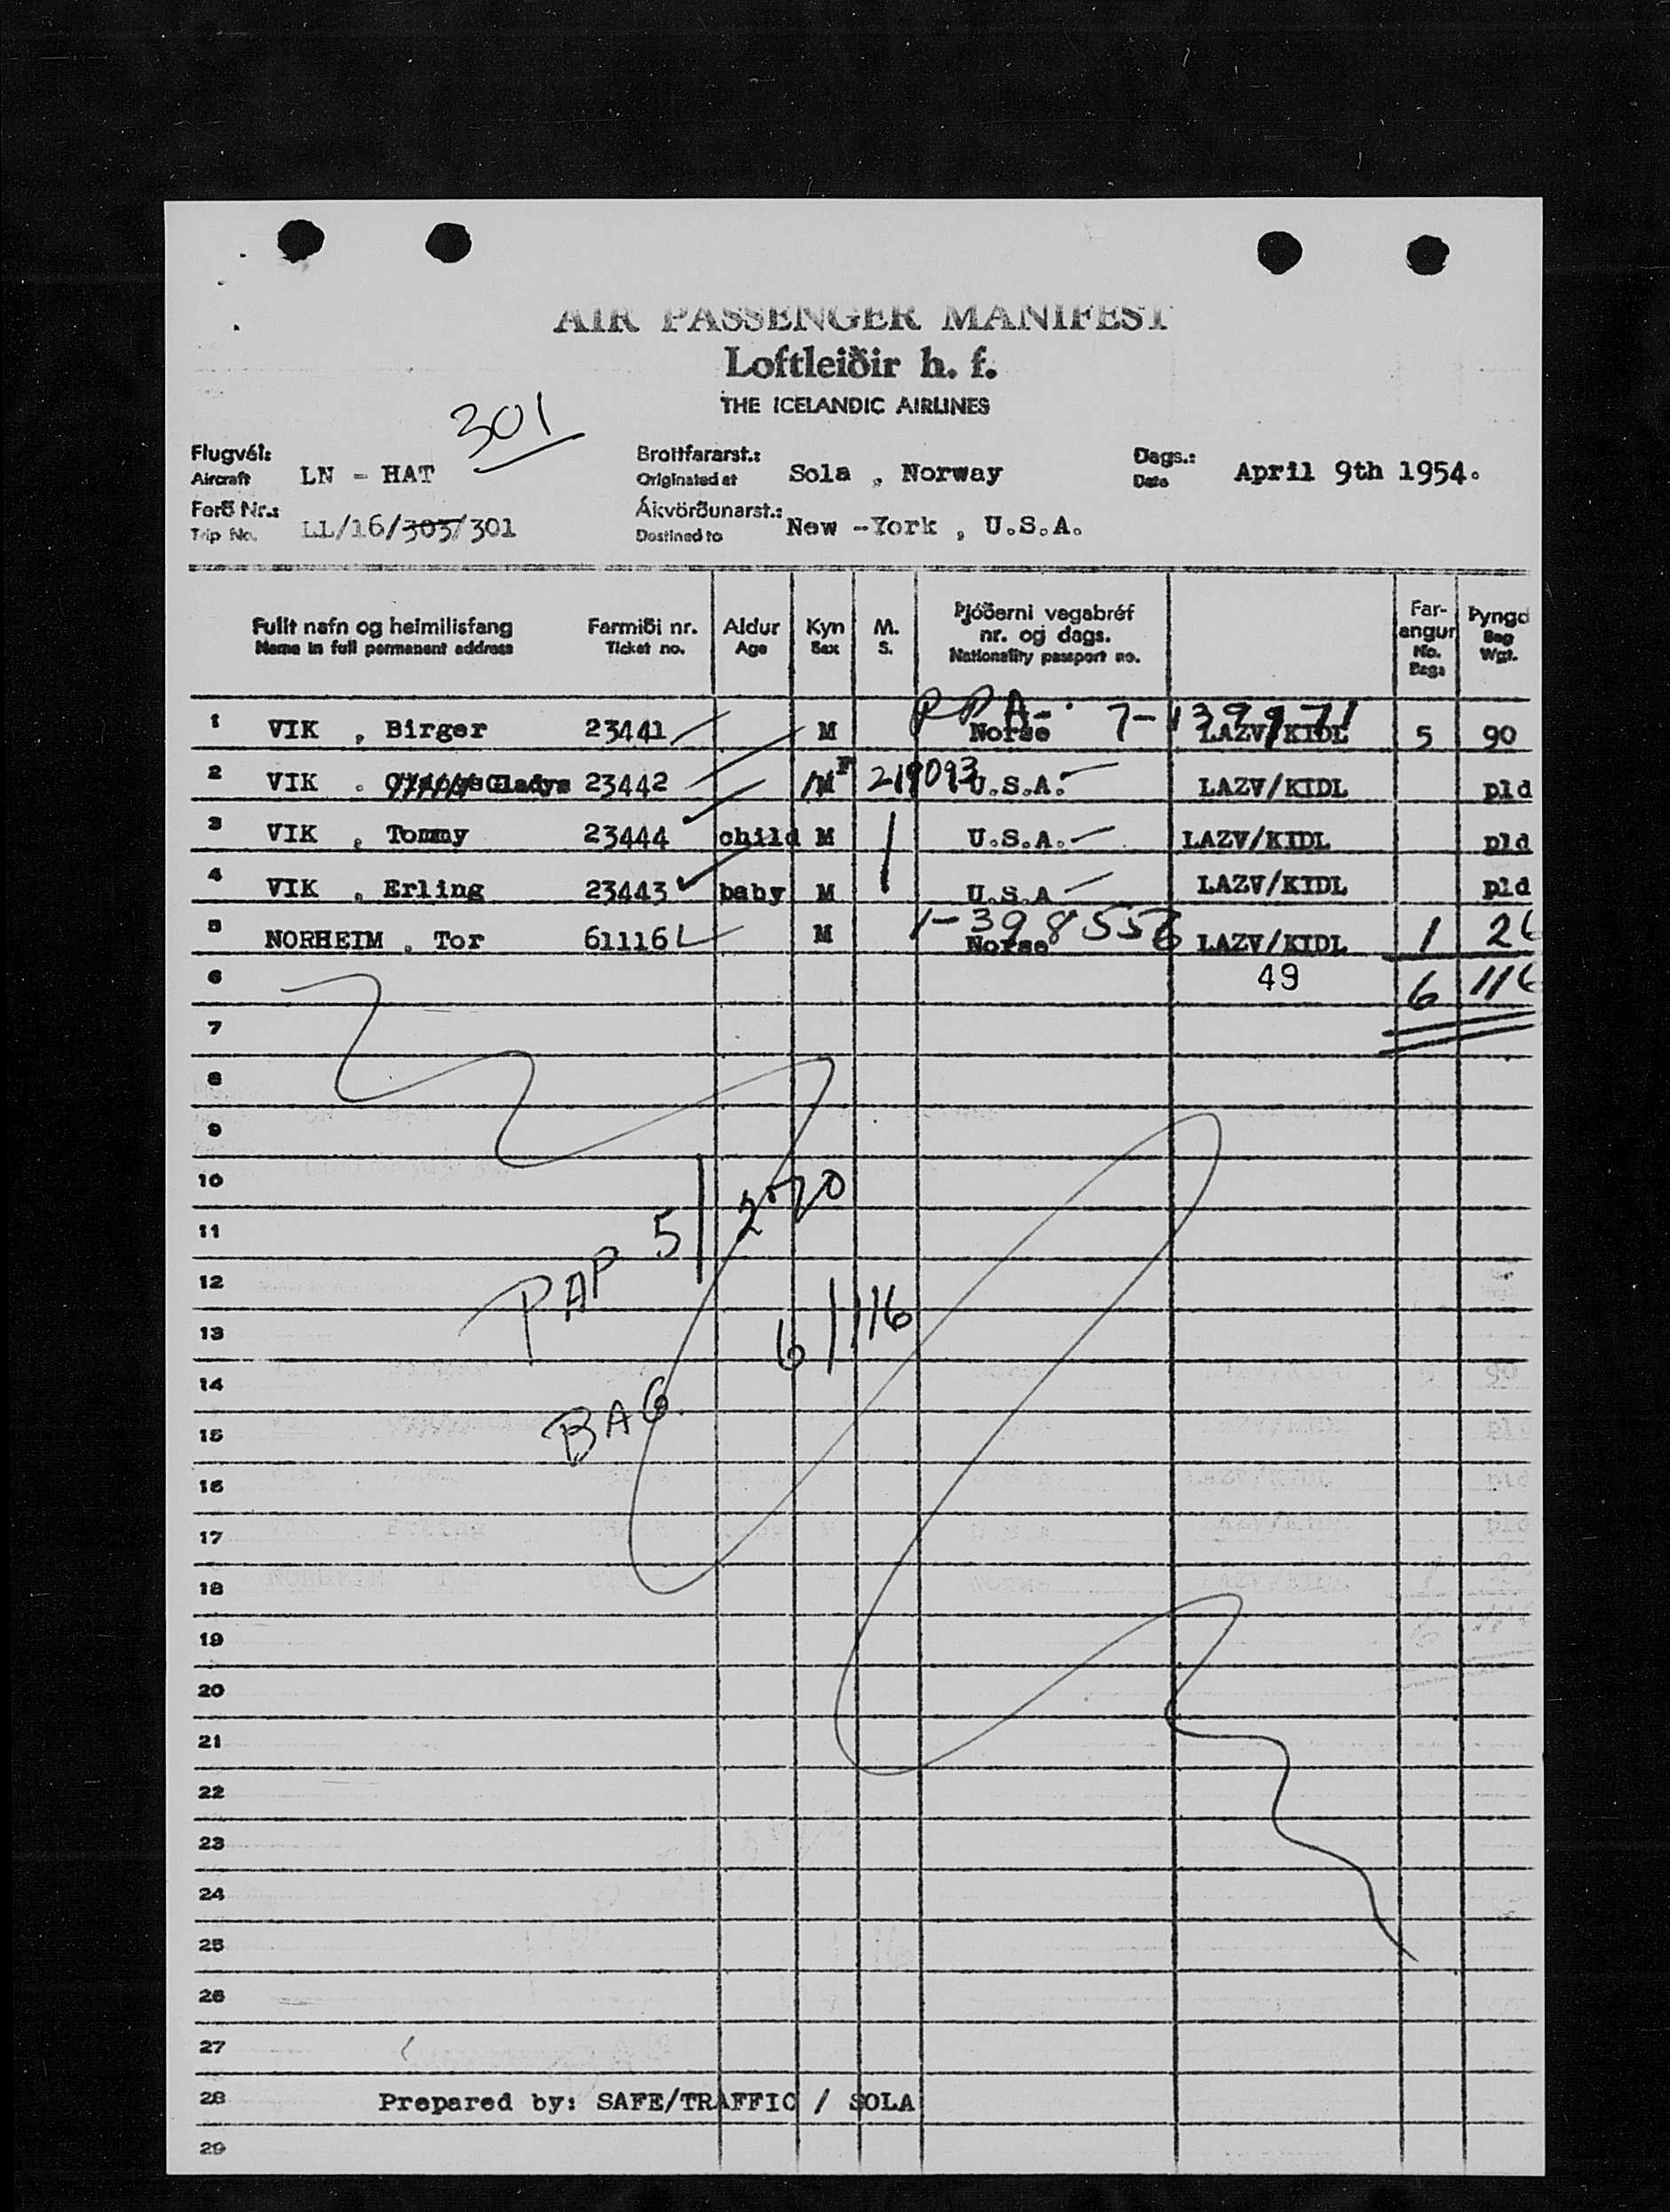 AIR PASSENGER MANIFEST
Loftleiðir h. f.
THE ICELANDIC AIRLINES
301
Flugvél: Brottfararst.: Dags.:
Aircraft LN - HAT Originated at Sola , Norway Date April 9th 1954.
Ferð Nr.: Ákvörðunarst.:
Trip No. LL/16/303/301 Destined to New -York , U.S.A.
Fullt nafn og heimilisfang Farmiði nr. Aldur Kyn M. Þjóðerni vegabréf nr. og dags. Farangur Þyngd
Name in full permanent address Ticket no. Age Sex S. Nationality passport no. No. Bags Bag Wgt.
1 VIK , Birger 23441 M Norse LAZV/KIDL 5 90
2 VIK . Gladys 23442 M F 219093 U.S.A. LAZV/KIDL pld
3 VIK , Tommy 23444 child M U.S.A. LAZV/KIDL pld
4 VIK , Erling 23443 baby M U.S.A LAZV/KIDL pld
5 NORHEIM , Tor 61116 M Norse LAZV/KIDL 1 26
6 49 6 116
7
8
9
10
11
12
13
14
15
16
17
18
19
20
21
22
23
24
25
26
27
28 Prepared by: SAFE/TRAFFIC / SOLA
29
PAP 5
6 116
BAG.